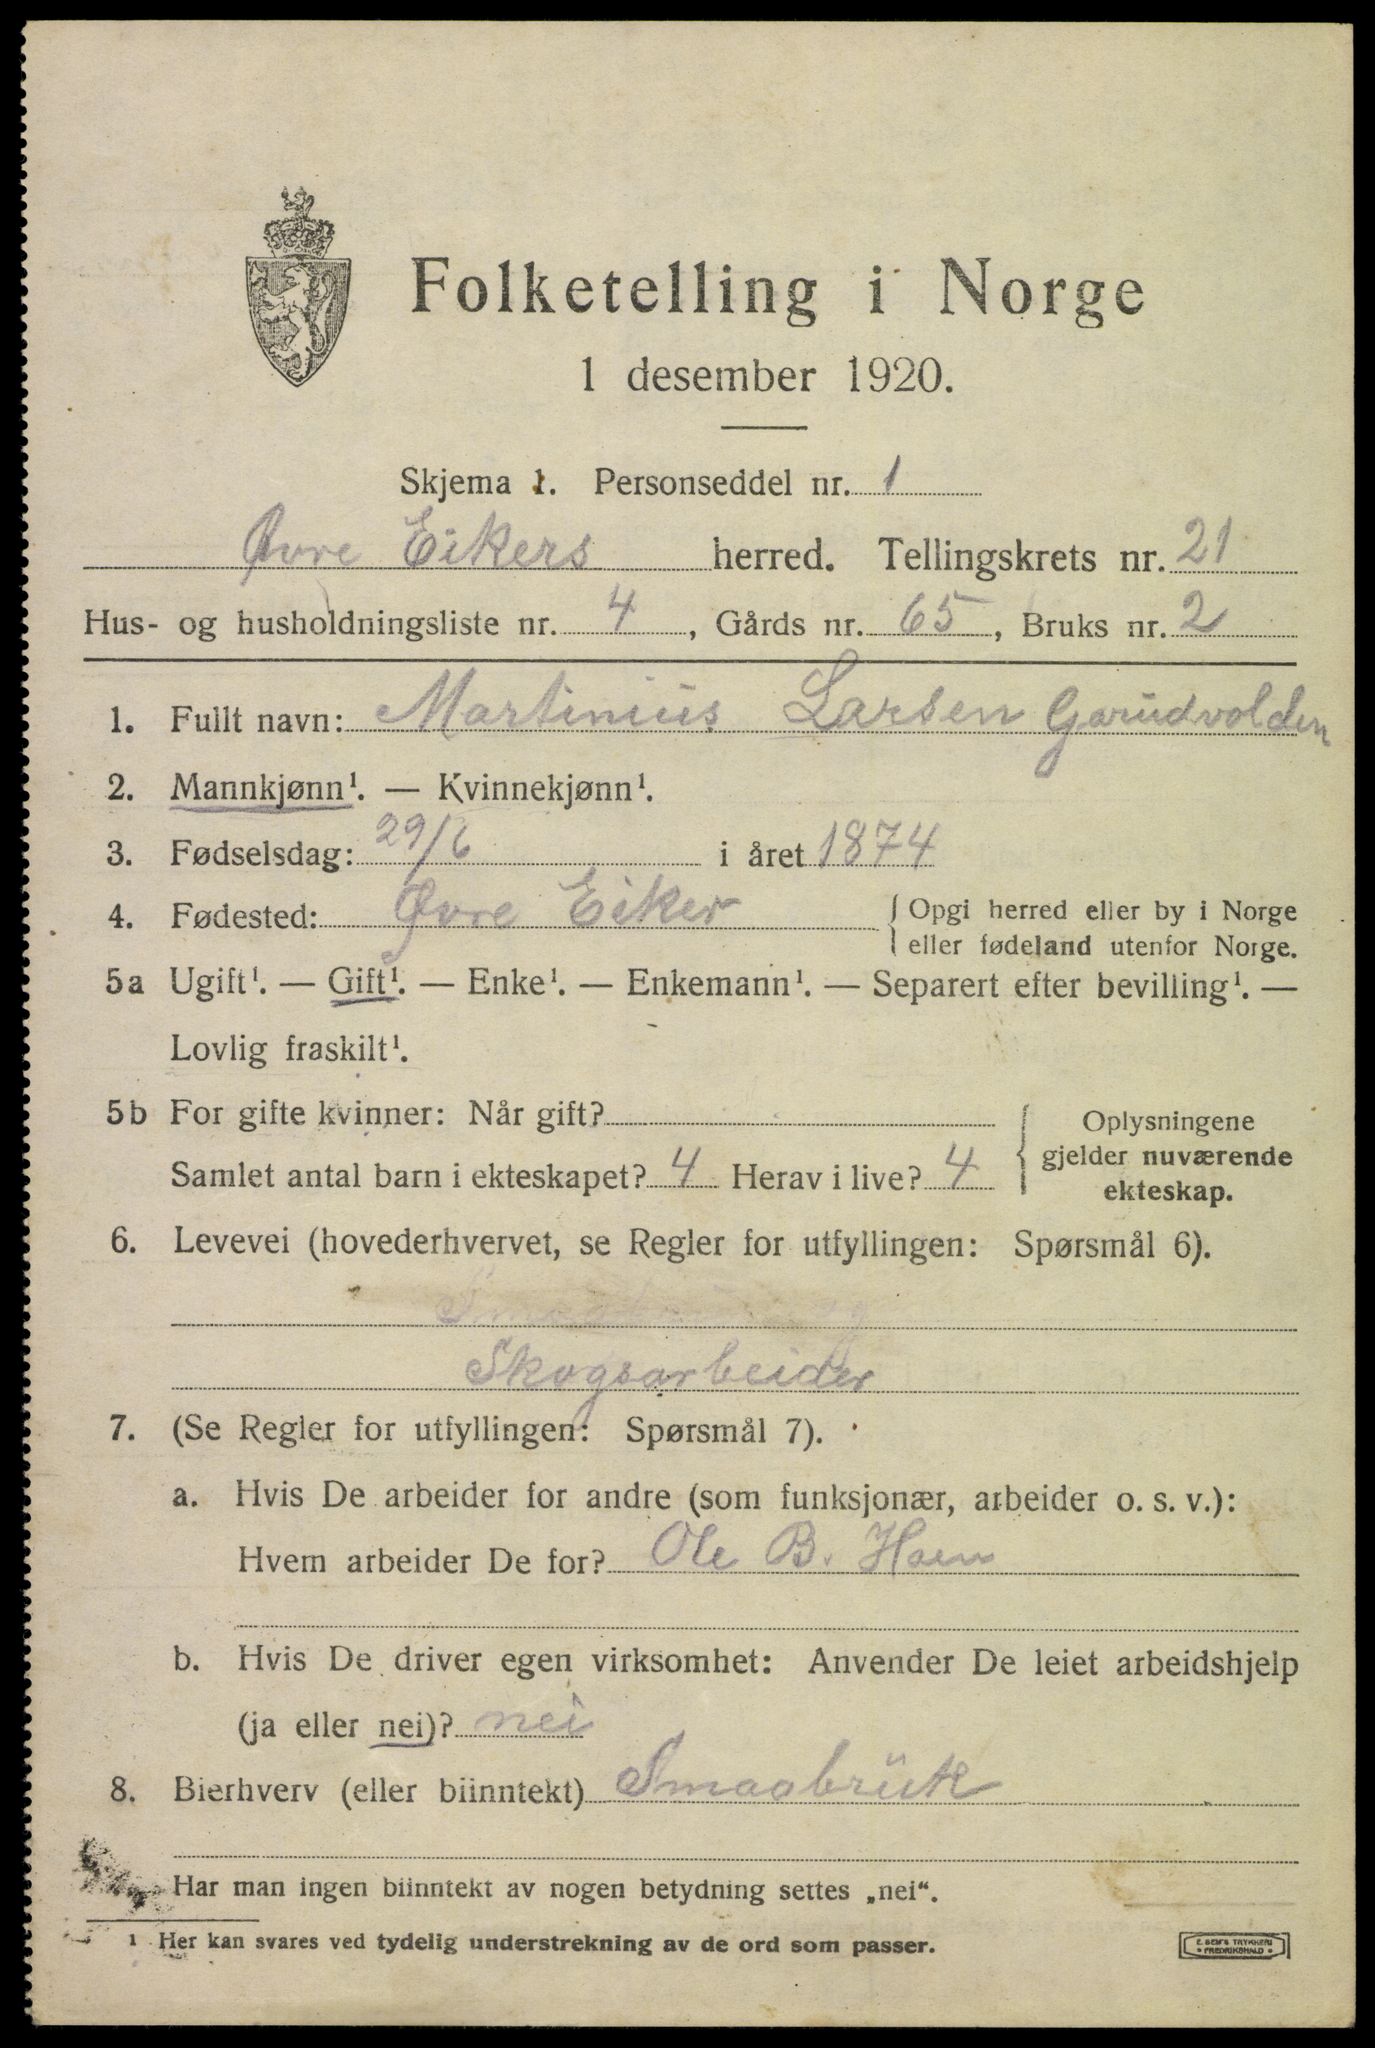 Folketelling i Norge
1 desember 1920.
Skjema 1. Personseddel nr. 1
Øvre Eikers herred. Tellingskrets nr. 21
Hus- og husholdningsliste nr. 4, Gårds nr. 65, Bruks nr. 2
1. Fullt navn: Martinius Larsen Garudvolden
2. Mannkjønn¹. — Kvinnekjønn¹.
3. Fødselsdag: 29/6 i året 1874
4. Fødested: Øvre Eiker { Opgi herred eller by i Norge
eller fødeland utenfor Norge.
5a Ugift¹. — Gift¹. — Enke¹. — Enkemann¹. — Separert efter bevilling¹. —
Lovlig fraskilt¹.
5b For gifte kvinner: Når gift?
Samlet antal barn i ekteskapet? 4 Herav i live? 4
{ Oplysningene
gjelder nuværende
ekteskap.
6. Levevei (hovederhvervet, se Regler for utfyllingen: Spørsmål 6).
Skogsarbeider
7. (Se Regler for utfyllingen: Spørsmål 7).
a. Hvis De arbeider for andre (som funksjonær, arbeider o. s. v.):
Hvem arbeider De for? Ole B. Hoen
b. Hvis De driver egen virksomhet: Anvender De leiet arbeidshjelp
(ja eller nei)? nei
8. Bierhverv (eller biinntekt) Smaabrük
Har man ingen biinntekt av nogen betydning settes „nei“.
¹ Her kan svares ved tydelig understrekning av de ord som passer.
E. SEM'S TRYKKERI
• FREDRIKSHALD •